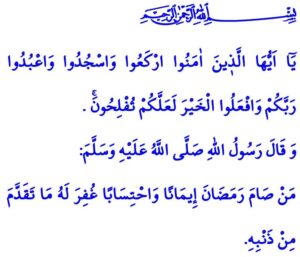 بِسْمِ اللهِ الرَّحْمٰنِ الرَّحِيمِ
يَٓا اَيُّهَا الَّذ۪ينَ اٰمَنُوا ارْكَعُوا وَاسْجُدُوا وَاعْبُدُوا
رَبَّكُمْ وَافْعَلُوا الْخَيْرَ لَعَلَّكُمْ تُفْلِحُونَۚ .
وَ قَالَ رَسُولُ اللهِ صَلَّى اللَّهُ عَلَيْهِ وَسَلَّمَ:
مَنْ صَامَ رَمَضَانَ إِيمَانًا وَاحْتِسَابًا غُفِرَ لَهُ مَا تَقَدَّمَ
مِنْ ذَنْبِهِ.